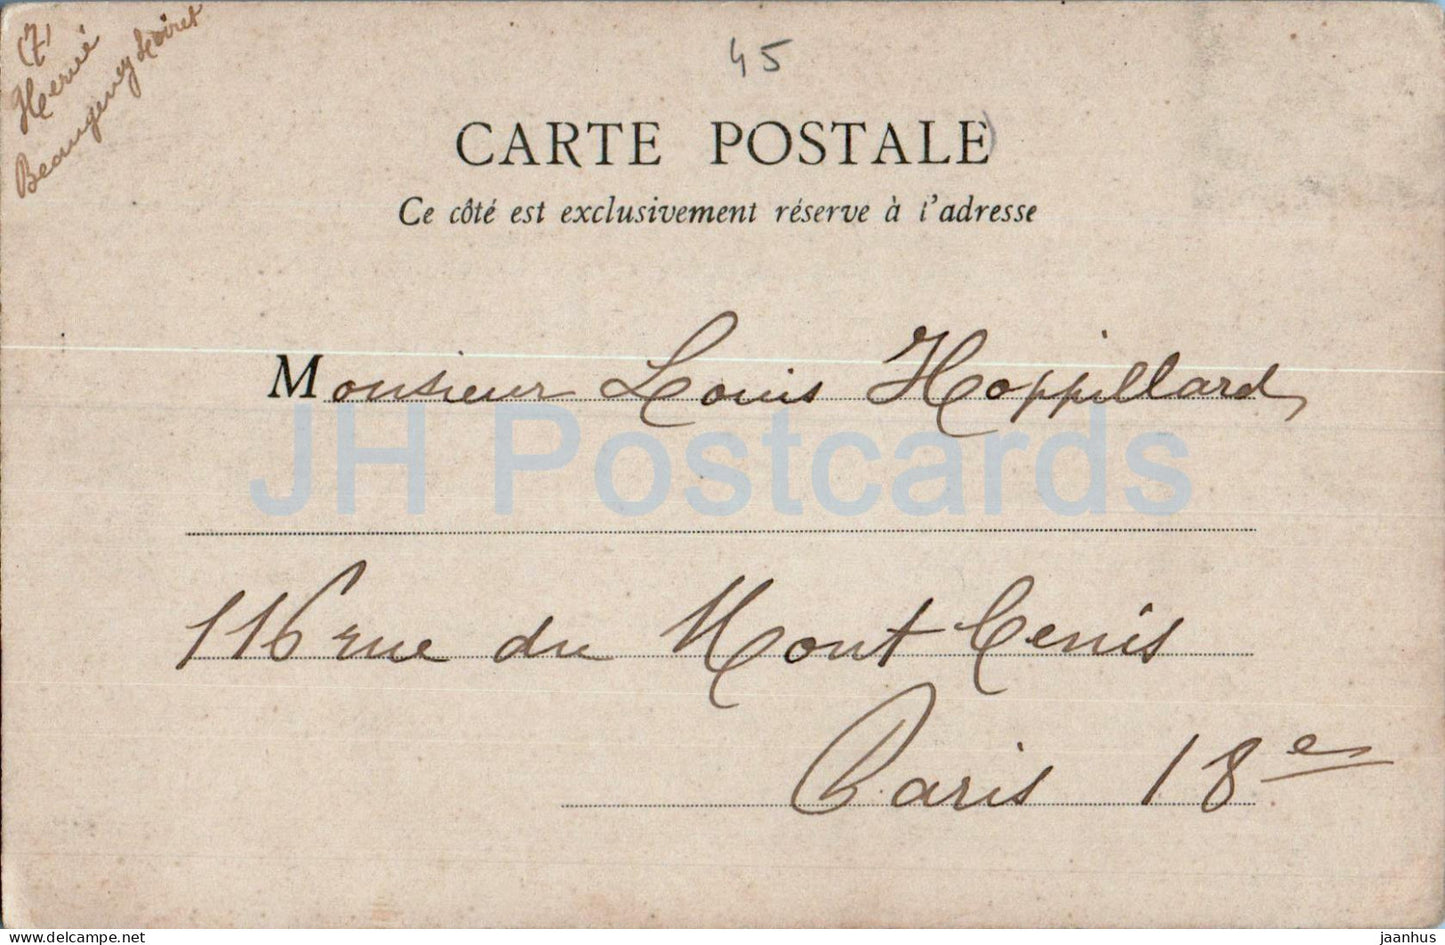 (7)
Hervé
Beaugency Loiret
45
CARTE POSTALE
Ce côté est exclusivement réserve à l'adresse
Monsieur Louis Hoppillard
JH Postcards
116 rue du Mont Cenis
Paris 18e
delcampe.net
jaanhus